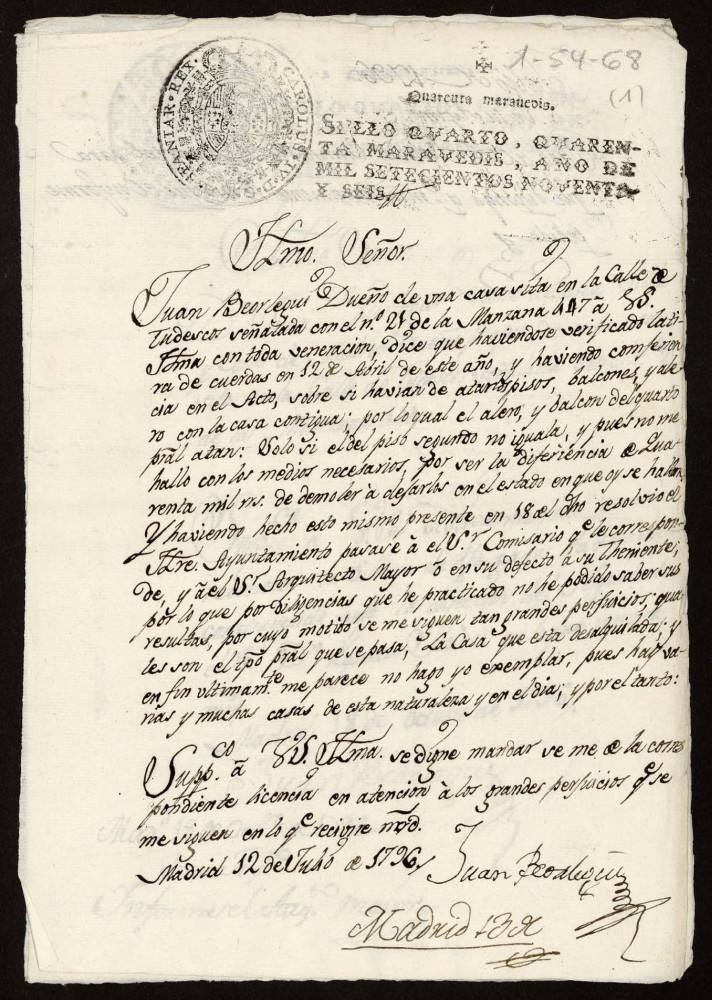 1-54-68
(1)
CAROLUS IV D. G. HISPANIAR. REX.
Quarenta marauedis.
SELLO QVARTO, QVAREN-
TA MARAVEDIS, AÑO DE
MIL SETECIENTOS NOVENTA
Y SEIS
Ylmo. Señor.
Juan Beorlegui Dueño de una casa sita en la Calle de
Tudescos señalada con el n.º 21 de la Manzana 447 â V.S.
Ylma con toda veneracion, dice que haviendose verificado la ti-
ra de cuerdas en 12 de Abril de este año, y haviendo conferen-
cia en el Acto, sobre si havian de atar los pisos, balcones, y ale-
ro con la casa contigua; por lo qual el alero, y balcon del quarto
pral atan: Solo si el del piso segundo no iguala, y pues no me
hallo con los medios necesarios, por ser la diferiencia de Qua-
renta mil rrs. de demoler à dejarlos en el estado en que oy se hallan
Y haviendo hecho esto mismo presente en 18 del dho resolvio el
Yltre. Ayuntamiento pasase â el S.r Comisario q.e le correspon-
de, y â el S.r Arquitecto Mayor ô en su defecto â su Theniente;
por lo que por diligencias que he practicado no he podido saber sus
resultas, por cuyo motibo se me siguen tan grandes perjuicios, qua-
les son el tpo pral que se pasa, La Casa que esta desalquilada; y
en fin ultimam.te me parece no hago yo exemplar, pues hay va-
rias y muchas casas de esta naturaleza y en el dia, y por el tanto:
Supp.co â V.S. Ylma. se digne mandar se me de la corres
pondiente licencia en atencion à los grandes perjuicios q.e se
me siguen en lo q.e recivire mrd.
Madrid 12 de Julio de 1796
Juan Beorlegui
Madrid 13 de